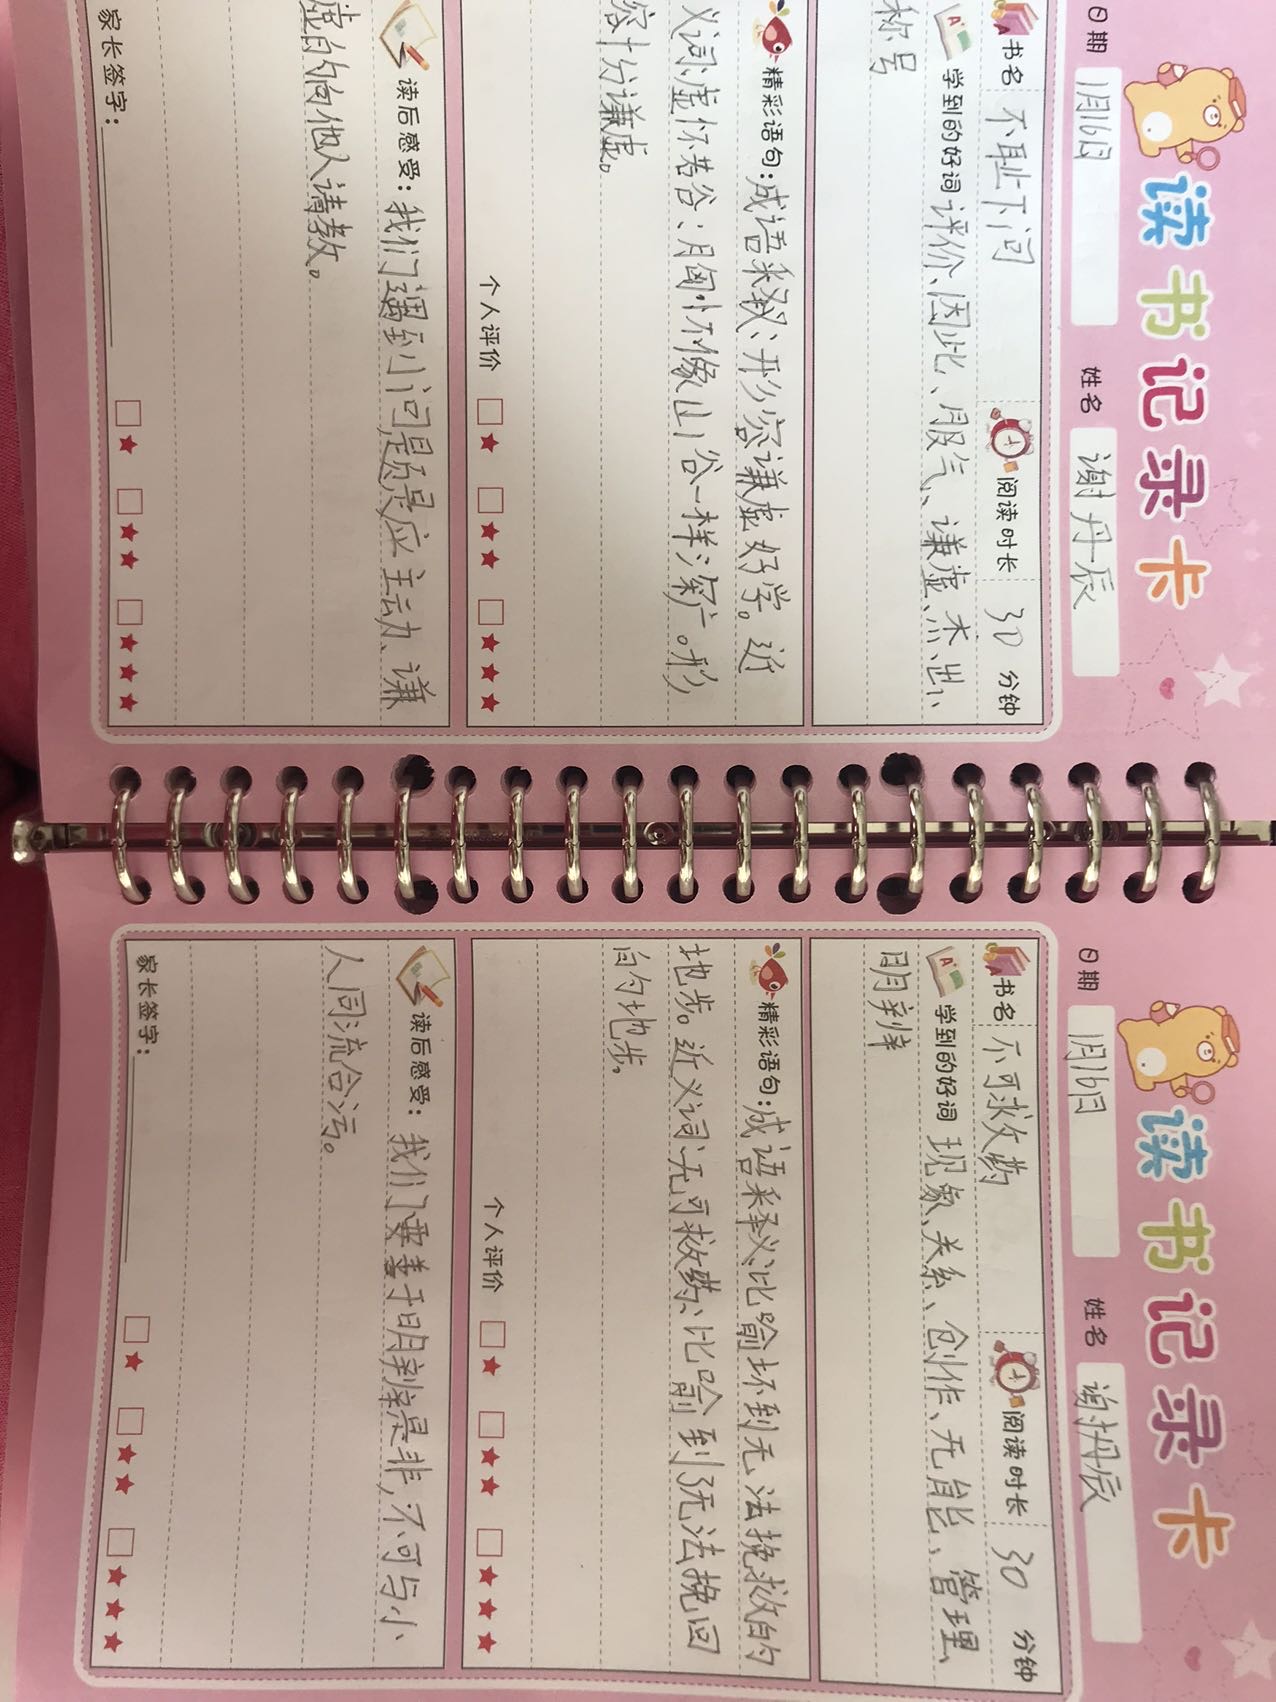 读书记录卡
日期 1月16日 姓名 谢丹辰
书名 不耻下问 阅读时长 30 分钟
学到的好词 评价、因此、服气、谦虚、杰出、
称号
精彩语句:成语释义、形容谦虚好学。近
义词:虚怀若谷:胸怀像山谷一样深广。形
容十分谦虚。
个人评价 □★ □★★ □★★★
读后感受:我们遇到问题是应主动、谦
虚的向他人请教。
家长签字: □★ □★★ □★★★
读书记录卡
日期 1月16日 姓名 谢丹辰
书名 不可救药 阅读时长 30 分钟
学到的好词 现象、关系、创作、无能、管理
明辨
精彩语句:成语释义:比喻坏到无法挽救的
地步。近义词:无可救药:比喻到了无法挽回
的地步。
个人评价 □★ □★★ □★★★
读后感受:我们要善于明辨是非,不可与小
人同流合污。
家长签字: □★ □★★ □★★★